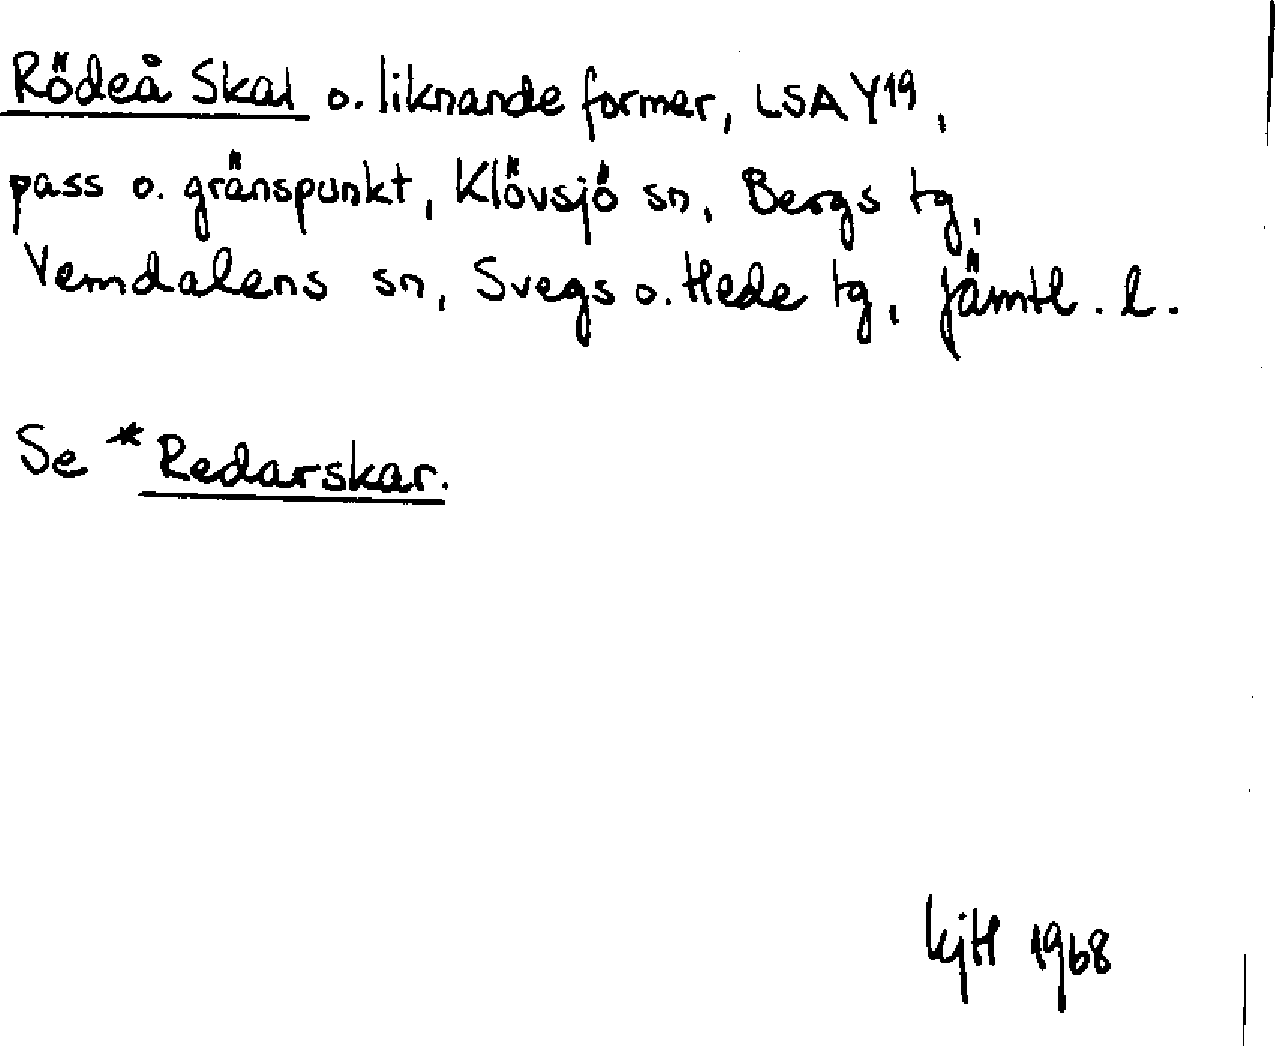 Rödeå Skal o. liknande former, LSA Y19,
pass o. gränspunkt, Klövsjö sn, Bergs tg,
Vemdalens sn, Svegs o. Hede tg, Jämtl. l.
Se *Redarskar.
KjH 1968